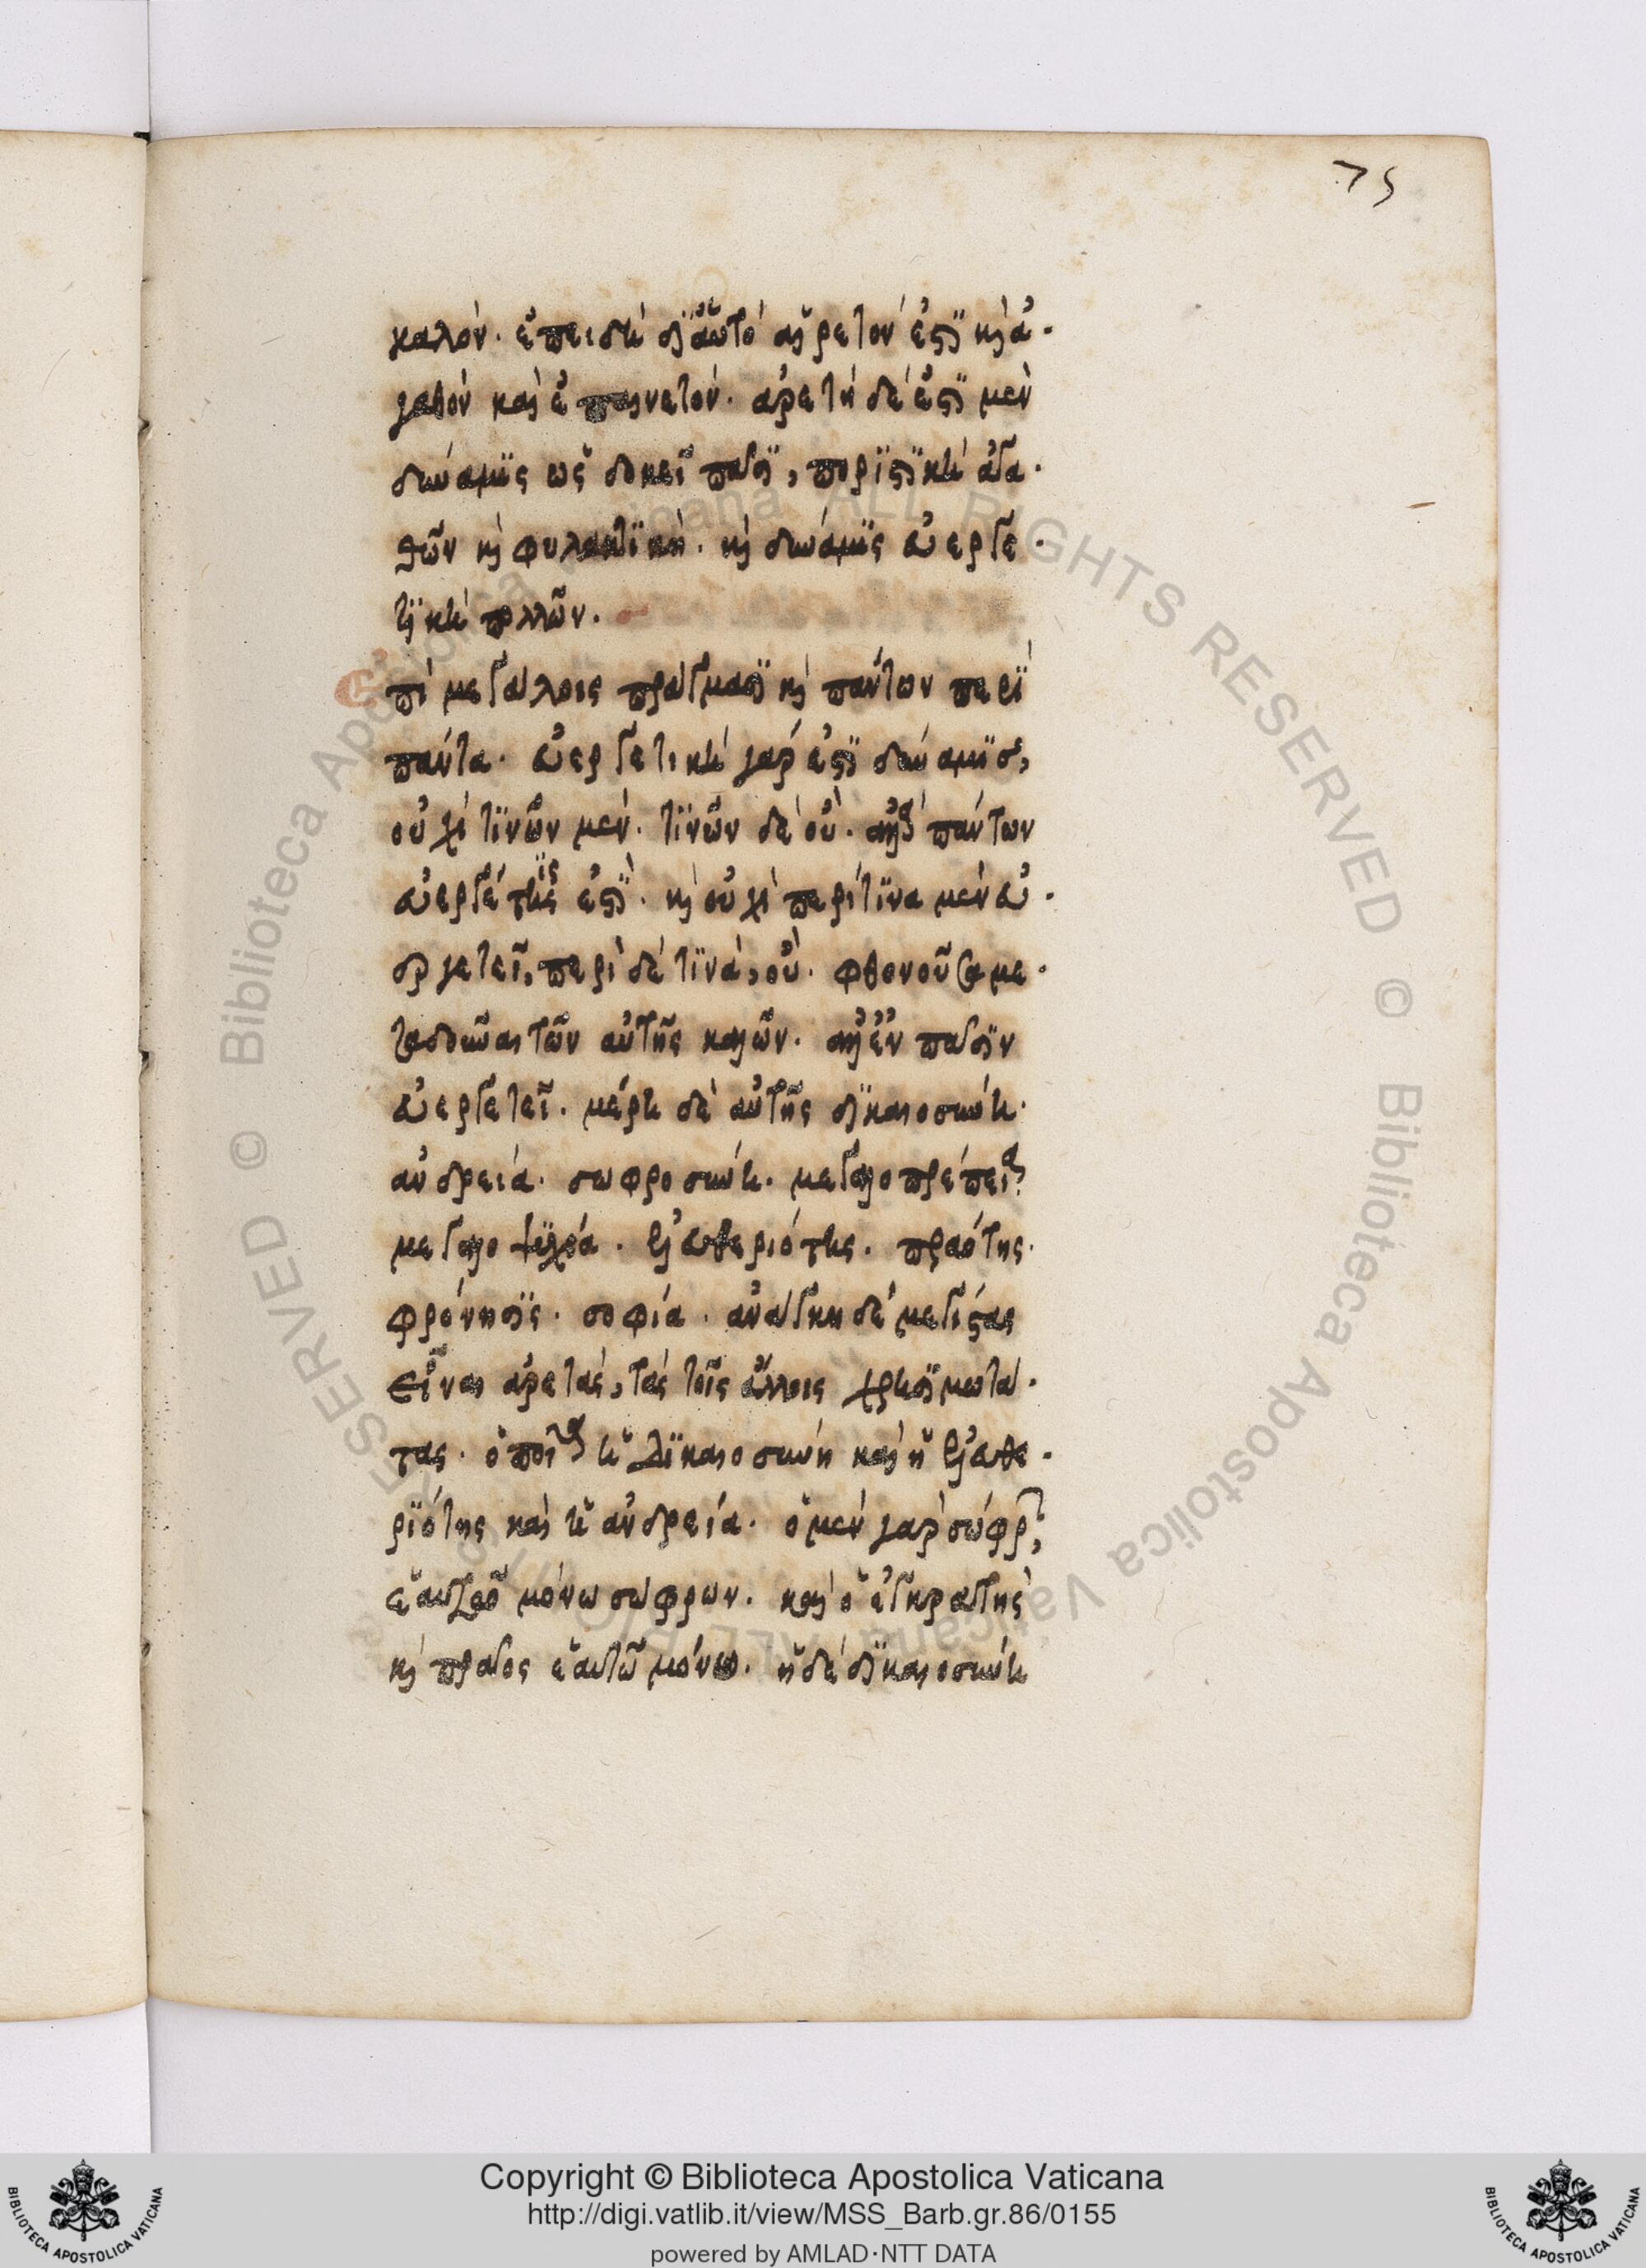 75
καλόν. ἐπειδὴ δι' αὐτὸ αἱρετόν ἐστι καὶ ἀ-
γαθὸν καὶ ἐπαινετόν. ἀρετὴ δέ ἐστι μὲν
δύναμις ὡς δοκεῖ πᾶσι, ποριστικὴ ἀγα-
θῶν καὶ φυλακτικὴ. καὶ δύναμις εὐεργε-
τικὴ πολλῶν.
Ἐπὶ μεγάλοις πράγμασι καὶ πάντων περὶ
πάντα. εὐεργετικὴ γάρ ἐστι δύναμις,
οὐχί τινῶν μὲν. τινῶν δὲ οὔ. ἀλλὰ πάντων
εὐεργέτις ἐστί. καὶ οὐχὶ περί τινα μὲν εὐ-
εργετεῖ, περὶ δὲ τινά, οὔ. φθονοῦσα με-
ταδοῦναι τῶν αὐτῆς καλῶν. ἀλλ' ἐν πᾶσιν
εὐεργετεῖ. μέρη δὲ αὐτῆς δικαιοσύνη.
ἀνδρεία. σωφροσύνη. μεγαλοπρέπεια.
μεγαλοψυχία. ἐλευθεριότης. πραότης.
φρόνησις. σοφία. ἀνάγκη δὲ μεγίστας
εἶναι ἀρετάς, τὰς τοῖς ἄλλοις χρησιμωτά-
τας. ὁποία ἡ δικαιοσύνη καὶ ἡ ἐλευθε-
ριότης καὶ ἡ ἀνδρεία. ὁ μὲν γὰρ σώφρων,
ἑαυτῷ μόνῳ σώφρων. καὶ ὁ ἐγκρατὴς
καὶ πρᾶος ἑαυτῷ μόνῳ. ἡ δὲ δικαιοσύνη
Copyright © Biblioteca Apostolica Vaticana
http://digi.vatlib.it/view/MSS_Barb.gr.86/0155
powered by AMLAD·NTT DATA
BIBLIOTECA APOSTOLICA VATICANA
BIBLIOTECA APOSTOLICA VATICANA
© Biblioteca Apostolica Vaticana ALL RIGHTS RESERVED © Biblioteca Apostolica Vaticana ALL RIGHTS RESERVED